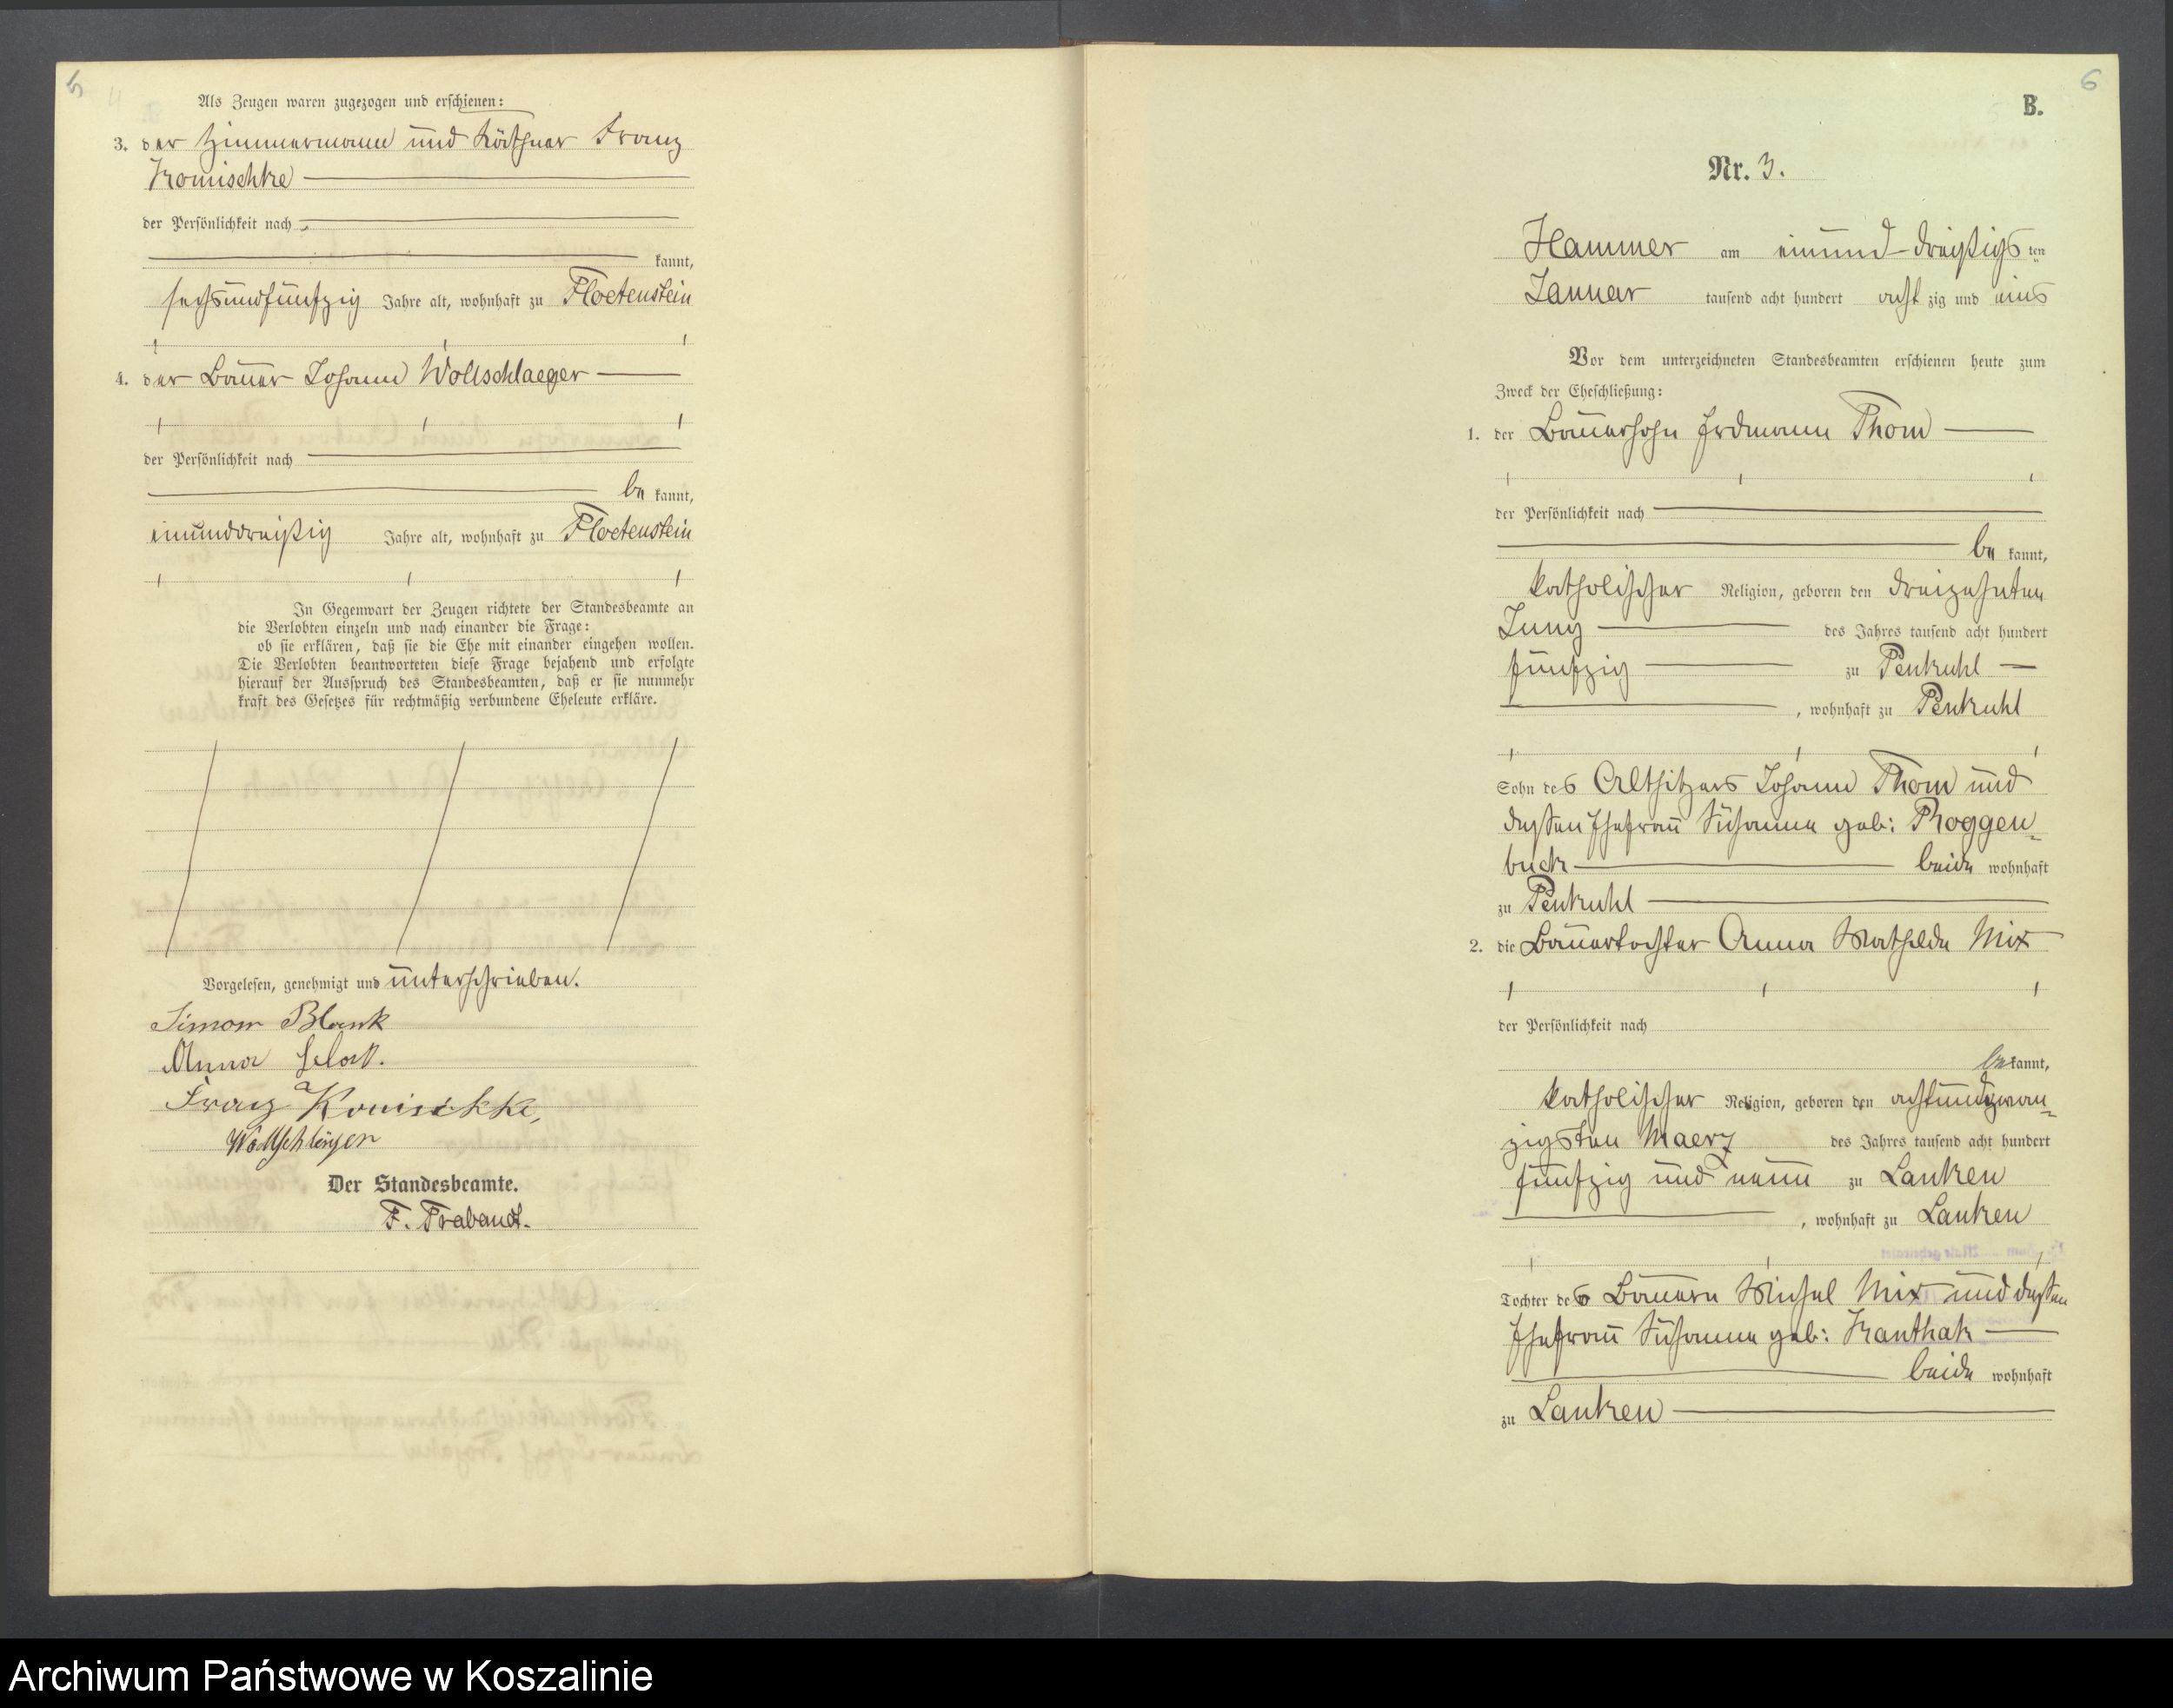 5
Als Zeugen waren zugezogen und erschienen:
3. der Zimmermann und Käthner Franz
Komischke
der Persönlichkeit nach
kannt,
sechsundfünfzig Jahre alt, wohnhaft zu Floetenstein
4. der Bauer Johann Wollschlaeger
der Persönlichkeit nach
be kannt,
einunddreißig Jahre alt, wohnhaft zu Floetenstein
In Gegenwart der Zeugen richtete der Standesbeamte an
die Verlobten einzeln und nach einander die Frage:
ob sie erklären, daß sie die Ehe mit einander eingehen wollen.
Die Verlobten beantworteten diese Frage bejahend und erfolgte
hierauf der Ausspruch des Standesbeamten, daß er sie nunmehr
kraft des Gesetzes für rechtmäßig verbundene Eheleute erkläre.
Vorgelesen, genehmigt und unterschrieben.
Simon Blank
Anna
Franz
Wollschläger
Der Standesbeamte.
F. Trabandt.
6
B.
Nr. 3.
Hammer am einund-dreißigsten
Januar tausend acht hundert acht zig und eins
Vor dem unterzeichneten Standesbeamten erschienen heute zum
Zweck der Eheschließung:
1. der Bauersohn Erdmann Thom
der Persönlichkeit nach
be kannt,
katholischer Religion, geboren den dreizehnten
Juny des Jahres tausend acht hundert
fünfzig zu Penkuhl
, wohnhaft zu Penkuhl
Sohn des Altsitzers Johann Thom und
dessen Ehefrau Susanna geb: Roggen-
buck beide wohnhaft
zu Penkuhl
2. die Bauertochter Anna Mathilde Mix
der Persönlichkeit nach
bekannt,
katholischer Religion, geboren den achtundzwan-
zigsten Maerz des Jahres tausend acht hundert
fünfzig und neun zu Lanken
, wohnhaft zu Lanken
Tochter des Bauern Michel Mix und dessen
Ehefrau Susanna geb: Kanthak
beide wohnhaft
zu Lanken
Archiwum Państwowe w Koszalinie